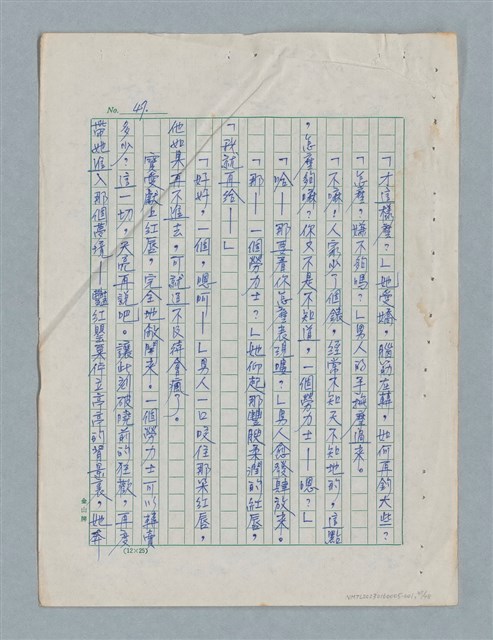 No. 47.
「才這樣麼？」她受嬌，腦筋在轉，如何再釣大些？
「怎麼，嫌不夠嗎？」男人的手撫摩過來。
「不嘛！人家少了個錶，經常不知天不知地的，這點
，怎麼夠嘛？你又不是不知道，一個勞力士——嗯？」
「哈——那要看你怎麼表現嘍？」男人愈發肆放來。
「那——一個勞力士？」她仰起那豐腴柔潤的紅唇，
「我就再給——」
「好好，一個，嗯呵——」男人一口咬住那朵紅唇，
他如果再不進去，可就這不及待會瘋了。
寶愛獻上紅唇，完全地敞開來，一個勞力士可以轉賣
多少？這一切，天亮再說吧。讓此刻破曉前的狂歡，再度
帶她進入那個夢境——艷紅罌粟伫立亭亭的背景裏，她奔
金山牌
(12×25)